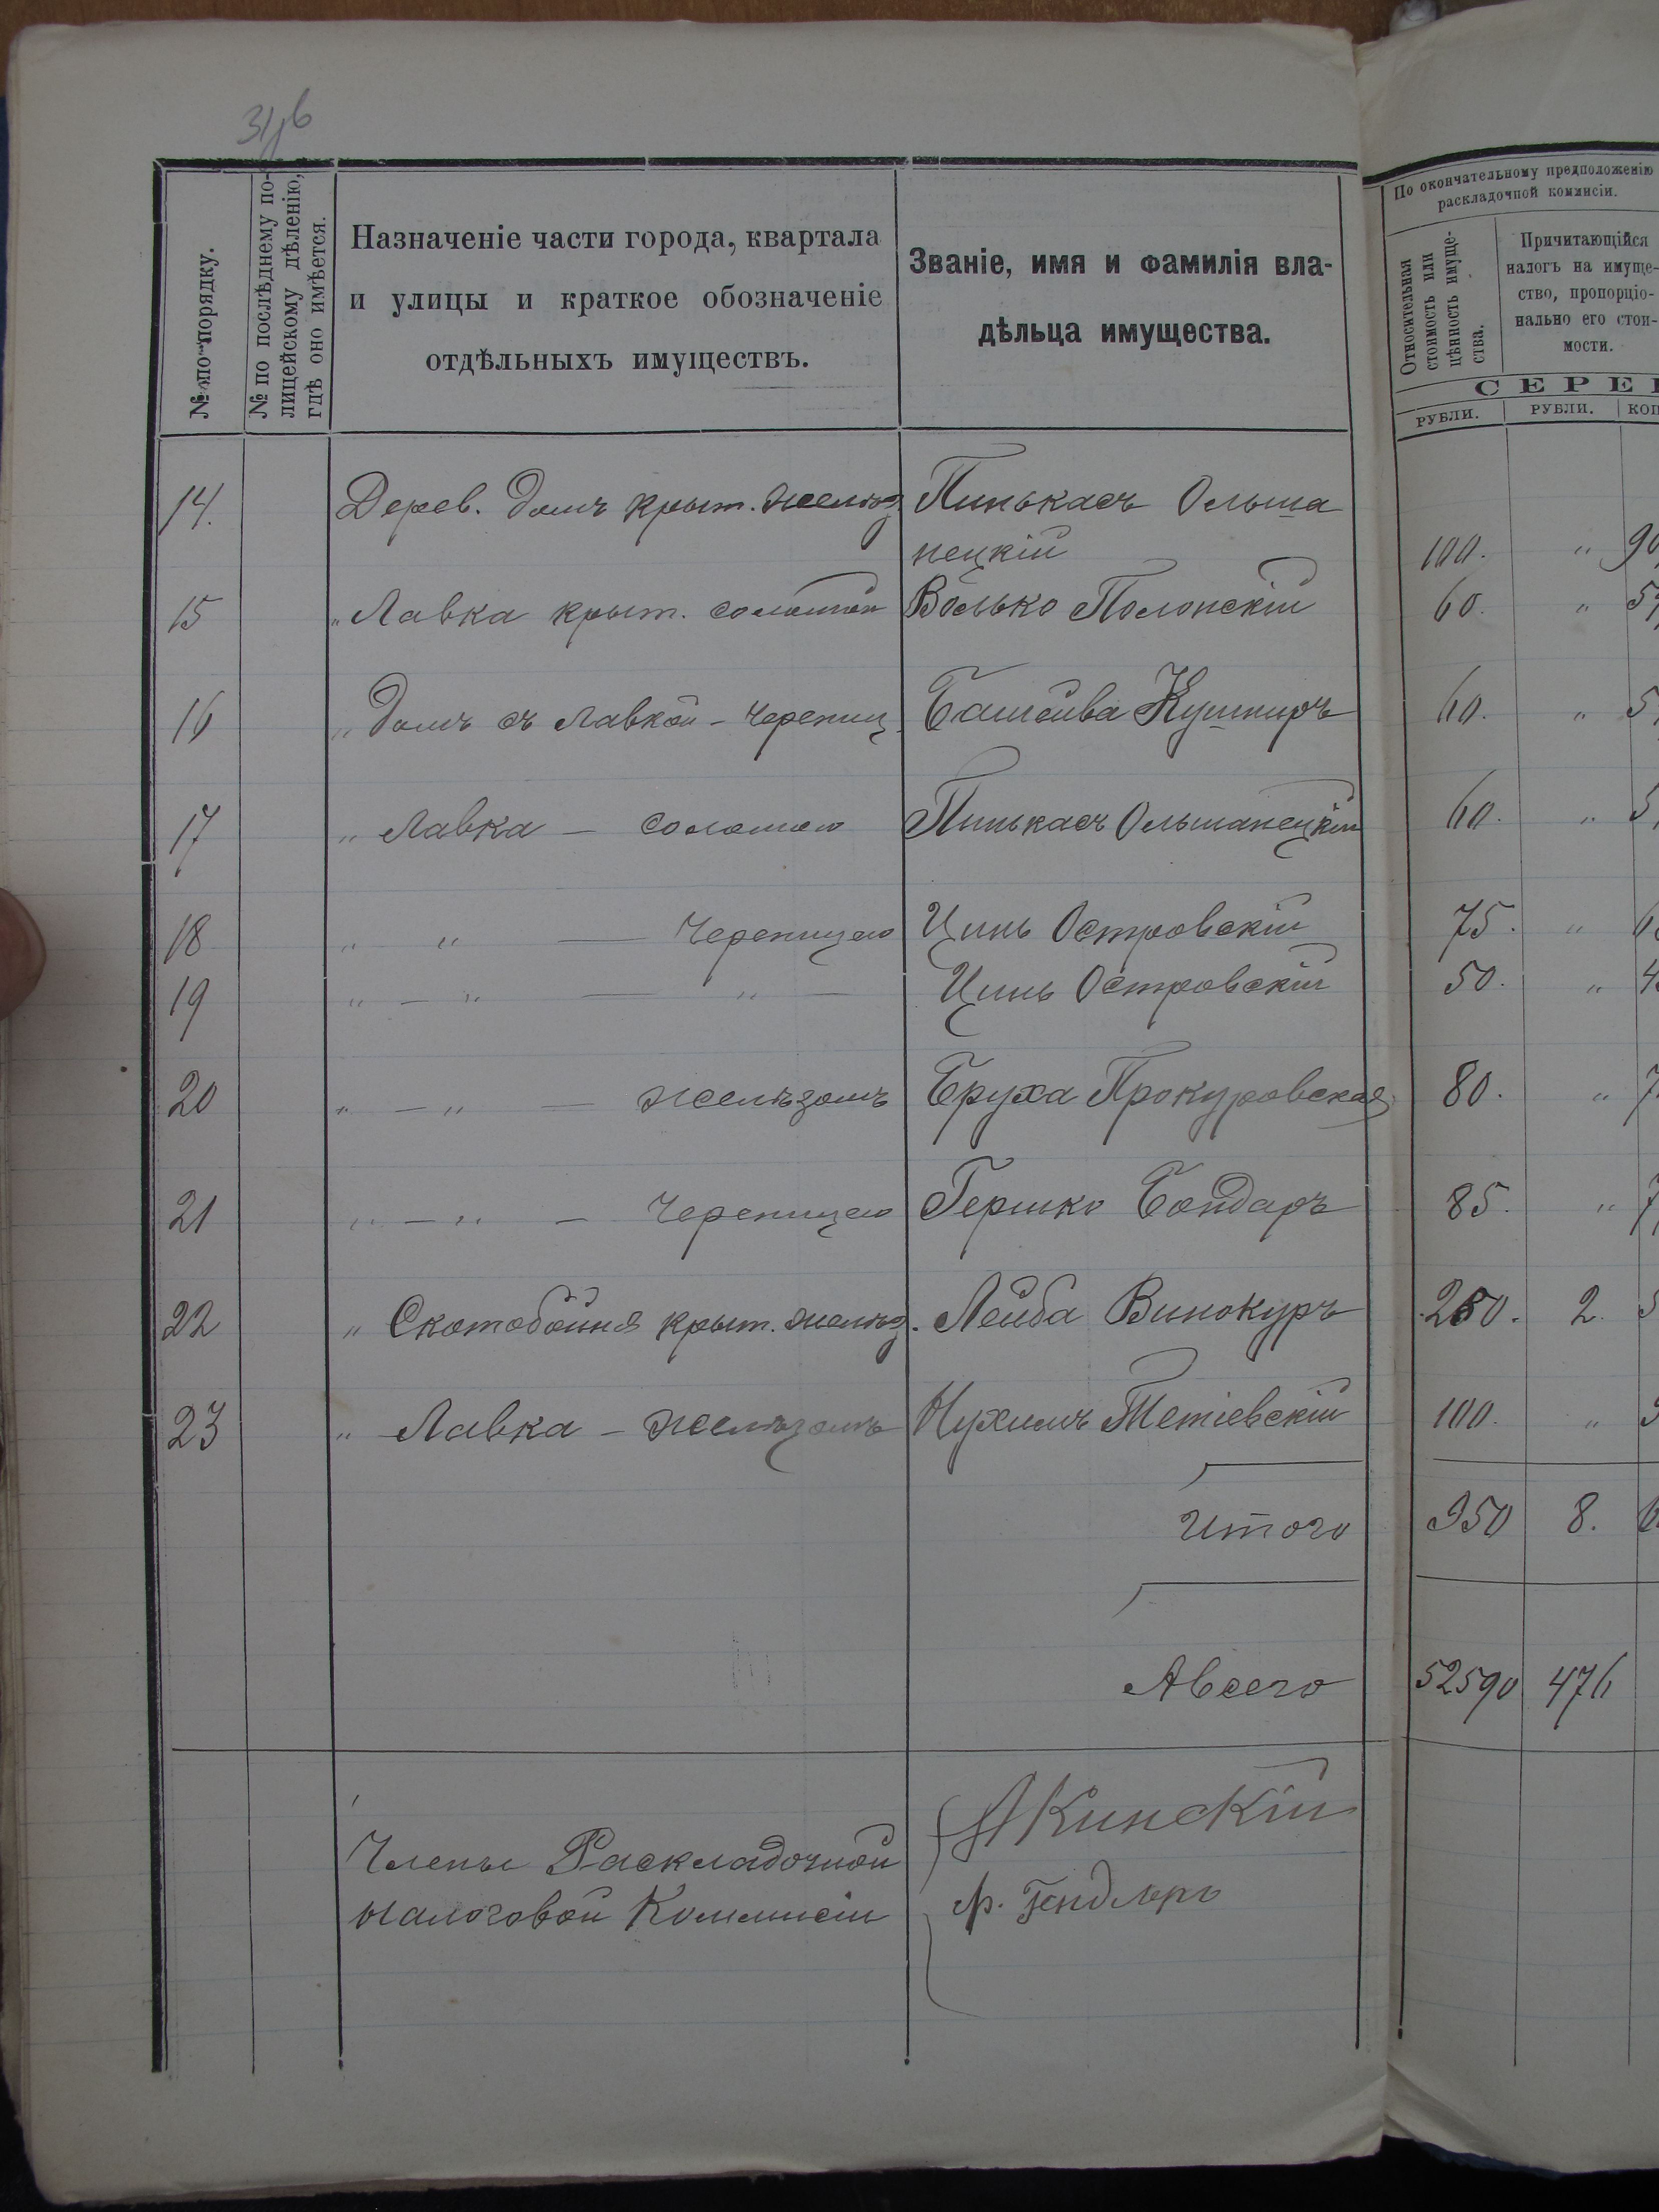 № по порядку.
№ по послѣднему по-
лицейскому дѣленію,
гдѣ оно имѣется.
Назначеніе части города, квартала
и улицы и краткое обозначеніе
отдѣльныхъ имуществъ.
Званіе, имя и фамилія вла-
дѣльца имущества.
По окончательному предположенію
раскладочной коммисіи.
Относительная
стоимость или
цѣнность имуще-
ства.
Причитающійся
налогъ на имуще-
ство, пропорціо-
нально его стои-
мости.
СЕРЕ
РУБЛИ. РУБЛИ. КОП
14. Дерев. домъ крыт. желѣз Пинькасъ Ольша
нецкій 100. " 90
15 " Лавка крыт. соломой Волько Полонскій 60. " 5
16 " Домъ съ лавкой - черепиц. Башейва Кушниръ 60. " 5
17 " Лавка — соломою Пинькасъ Ольшанецкій 60. " 5
18 " " — Черепицею Цинь Островскій 75. " 6
19 " — " — " — Цинь Островскій 50. " 4
20 " — " — желѣзомъ Бруха Прокуровская 80. " 7
21 " — " — Черепицею Гершко Бондаръ 85. " 7
22 " Скотобойня крыт. желѣз. Лейба Винокуръ 250. 2.
23 " Лавка — желѣзомъ Нухимъ Тетіевскій 100. "
Итого 950 8. 6
Авсего 52590 476
Члены Раскладочной
налоговой Коммисіи
АКинскій